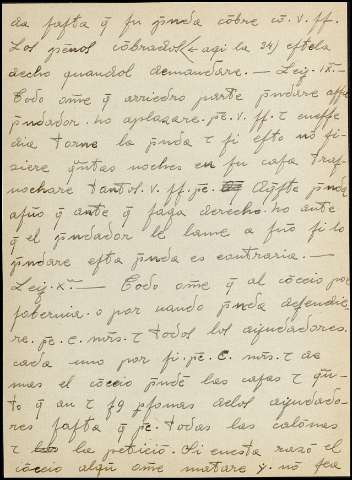 da fasta q̄ su p̄nda cōbre cō. v. ff.
Los pēnos cōbrados (← aqi la 24) estela
decho quandol demandare. — Ley. IX.—
Todo om̄e q̄ arriedro parte p̄ndare affe
p̄ndador. ho aplazare. pē. v. ff. τ eneffe
dia torne la p̄nda τ si esto no fi-
ziere q̄ntas noches en su casa tras-
nochare tantos. v. ff. pē. Aq̄sta p̄nda
afuo q̄ ante q̄ faga derecho. ho ante
q̄ el p̄ndador le lame a fuo si lo
p̄ndare esta p̄nda es contraria. —
Ley. X.— Todo om̄e q̄ al cōceio por
soberuia. o por uando p̄nda defendie-
re. pē. c. mr̄s. τ todos los aiudadores.
cada uno por si. pē. c. mr̄s. τ de
mas el cōceio p̄nde las casas τ q̄n-
to q̄ an τ p̄sonas delos aiudado-
res fasta q̄ pē. todas las calōnas
τ la peticiō. Si en esta razō el
cōceio algū om̄e matare y. nō sea